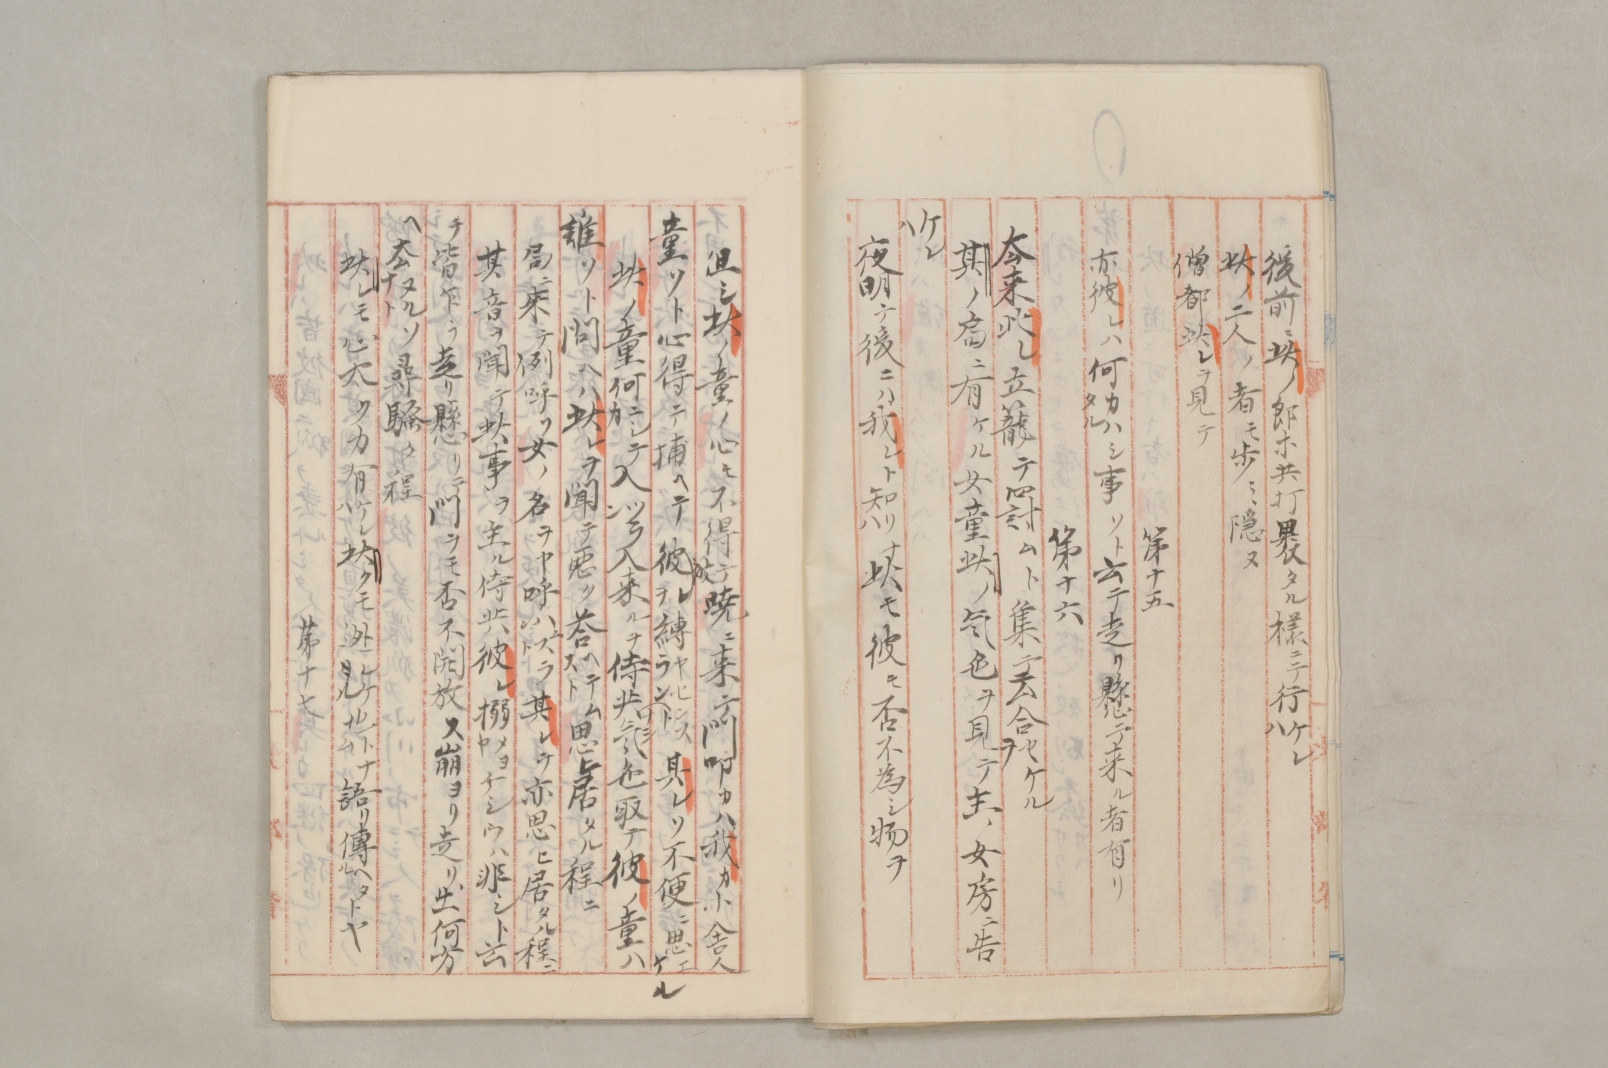 後前ニ此ノ郎等共打裹タル様ニテ行ケレハ
此ノ二人ノ者モ歩ミ隠ヌ
僧都此レヲ見テ
第十五
亦彼レハ何カタルハシ事ソト云テ走リ懸テ来ル者有リ
第十六
太来此レ立籠テ罸ムト集テ云合セケルヲ
其ノ局ニ有ケル女童此ノ気色ヲ見テ主ノ女房ニ告
ケレハ
夜明テ後ニハ我レト知リハ此モ彼モ否不為シ物ヲ
但シ此ノ童ノ心モ不得テ暁ニ来テ門叩カハ我カ小舎人
童ソト心得テ捕ヘテ彼レ縛ラント其レソ不便ニ思エケル
此ノ童何ニシテカ入ツラン入来ルヲ侍共気色取テ彼ノ童ハ
誰ソト問ヘハ此レヲ聞テ悪ク答ヘテムスト思ヒ居タル程ニ
局ニ来テ例呼フ女ノ名ヲヤ呼ハムスラ其レヲ亦思ヒ居タル程ニ
其音ヲ聞テ此事ヲ主ル侍共彼レ搦メヨヤシウハ非シト云
テ皆下ラ走リ懸リテ門ラモ否不開放ス崩ヨリ走リ出何方
ヘ太ナトタルソ尋騒ク程
此レモ心太ツカ有ケレハ此クモ外レケルトナ語リ傳ヘタルトヤ
第十七